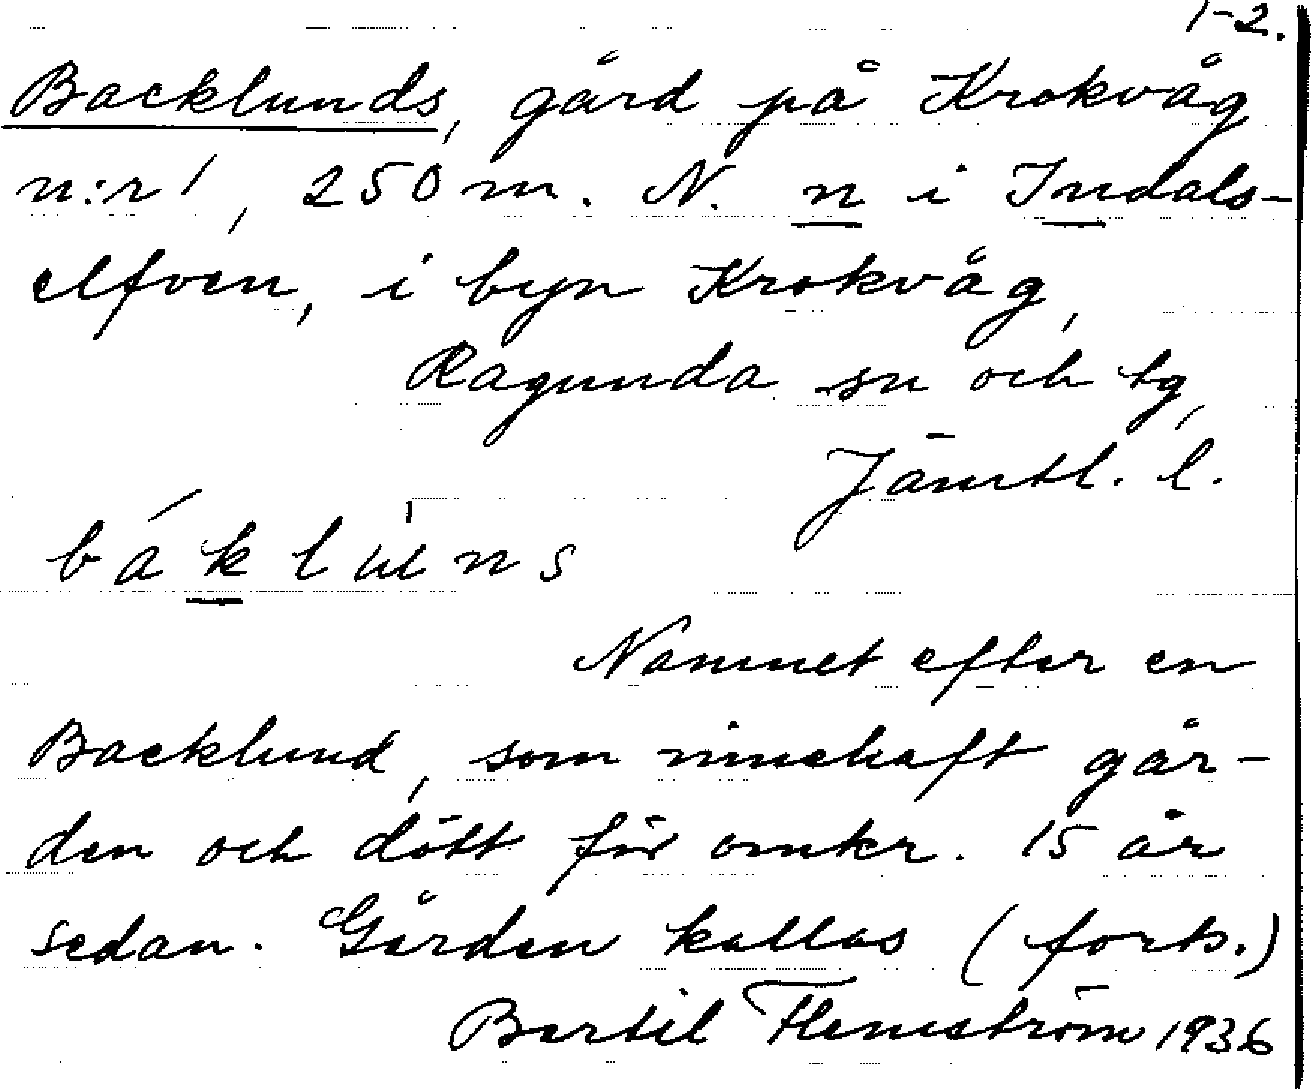 1-2.
Backlunds, gård på Krokvåg
n:r 1, 250 m. N. n i Indals-
elfven, i byn Krokvåg,
Ragunda sn och tg,
Jämtl. l.
Namnet efter en
Backlund, som innehaft går-
den och dött för omkr. 15 år
sedan. Gården kallas (forts.)
Bertil Flemström 1936